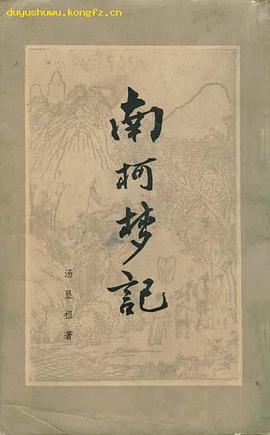 duyushuwu.kongfz.cn
南柯梦記
汤显祖著